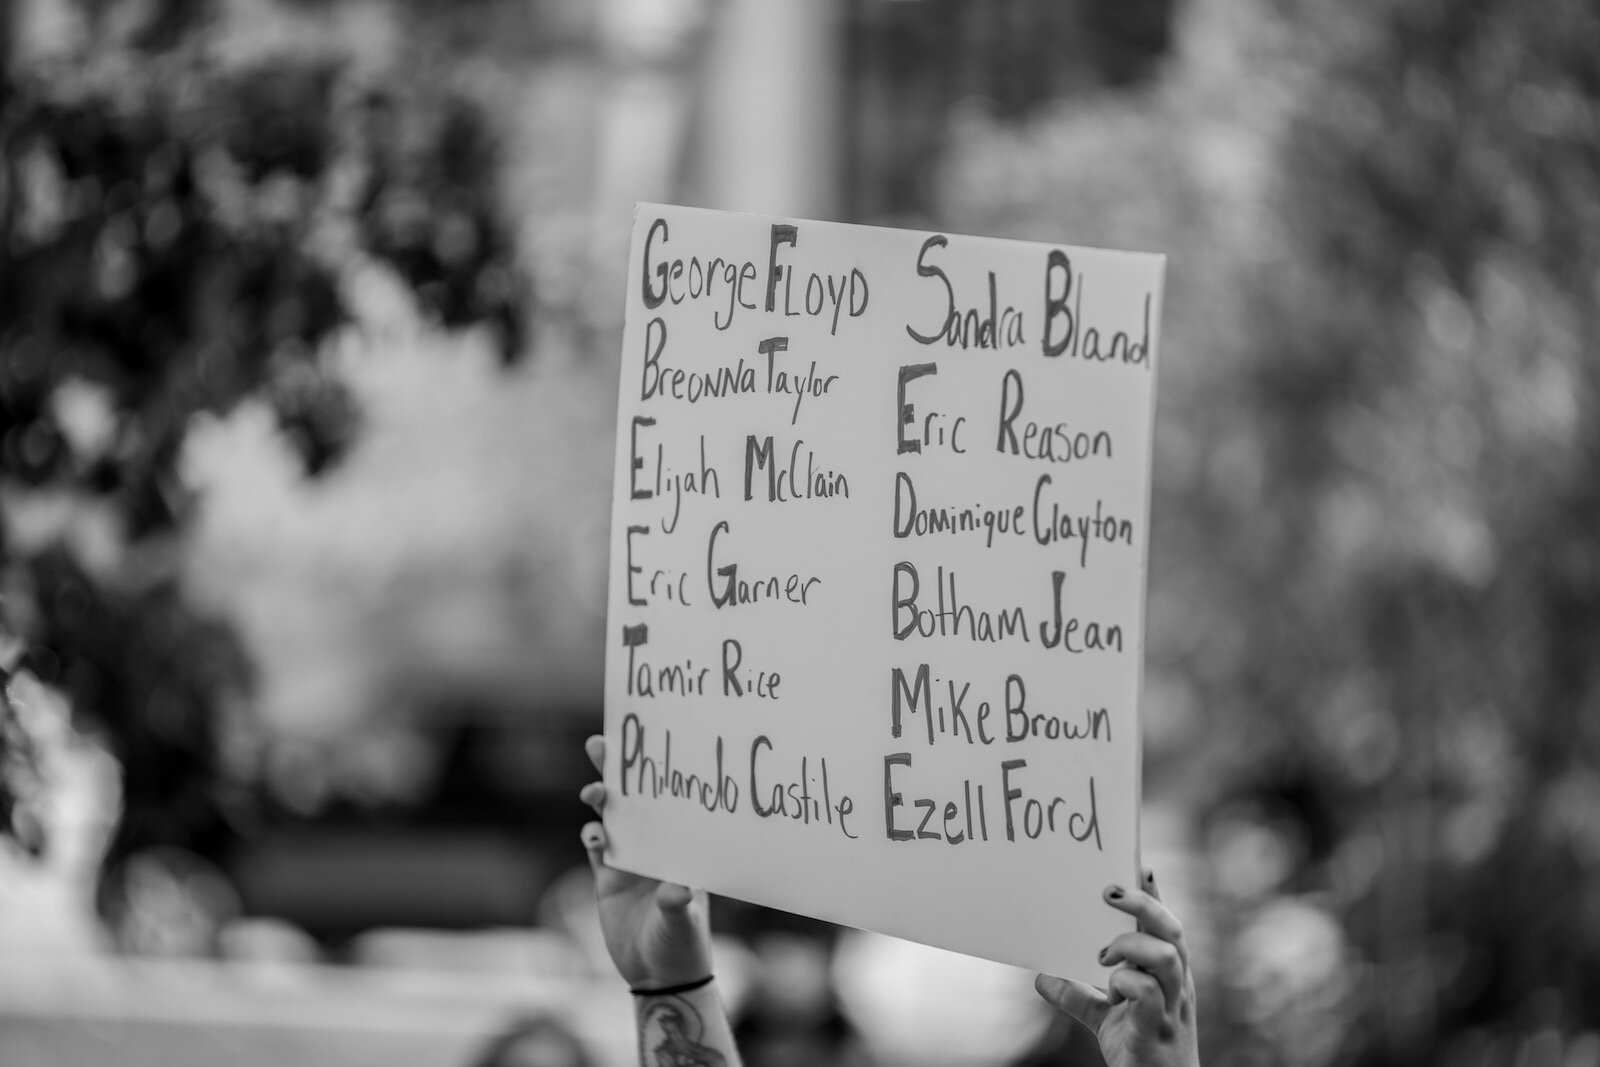 George Floyd
Breonna Taylor
Elijah McClain
Eric Garner
Tamir Rice
Philando Castile
Sandra Bland
Eric Reason
Dominique Clayton
Botham Jean
Mike Brown
Ezell Ford